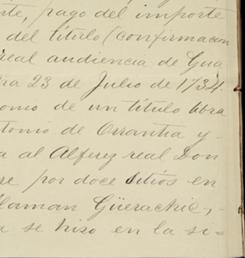 te, pago del importe
del título (confirmacion
real audiencia de Gua
ra 23 de Julio de 1734
omo de un título libra
tonio de Orrantia y-
a al Alferez real Don
re por doce sitios en
Güerachic,-
a se hizo en la si-